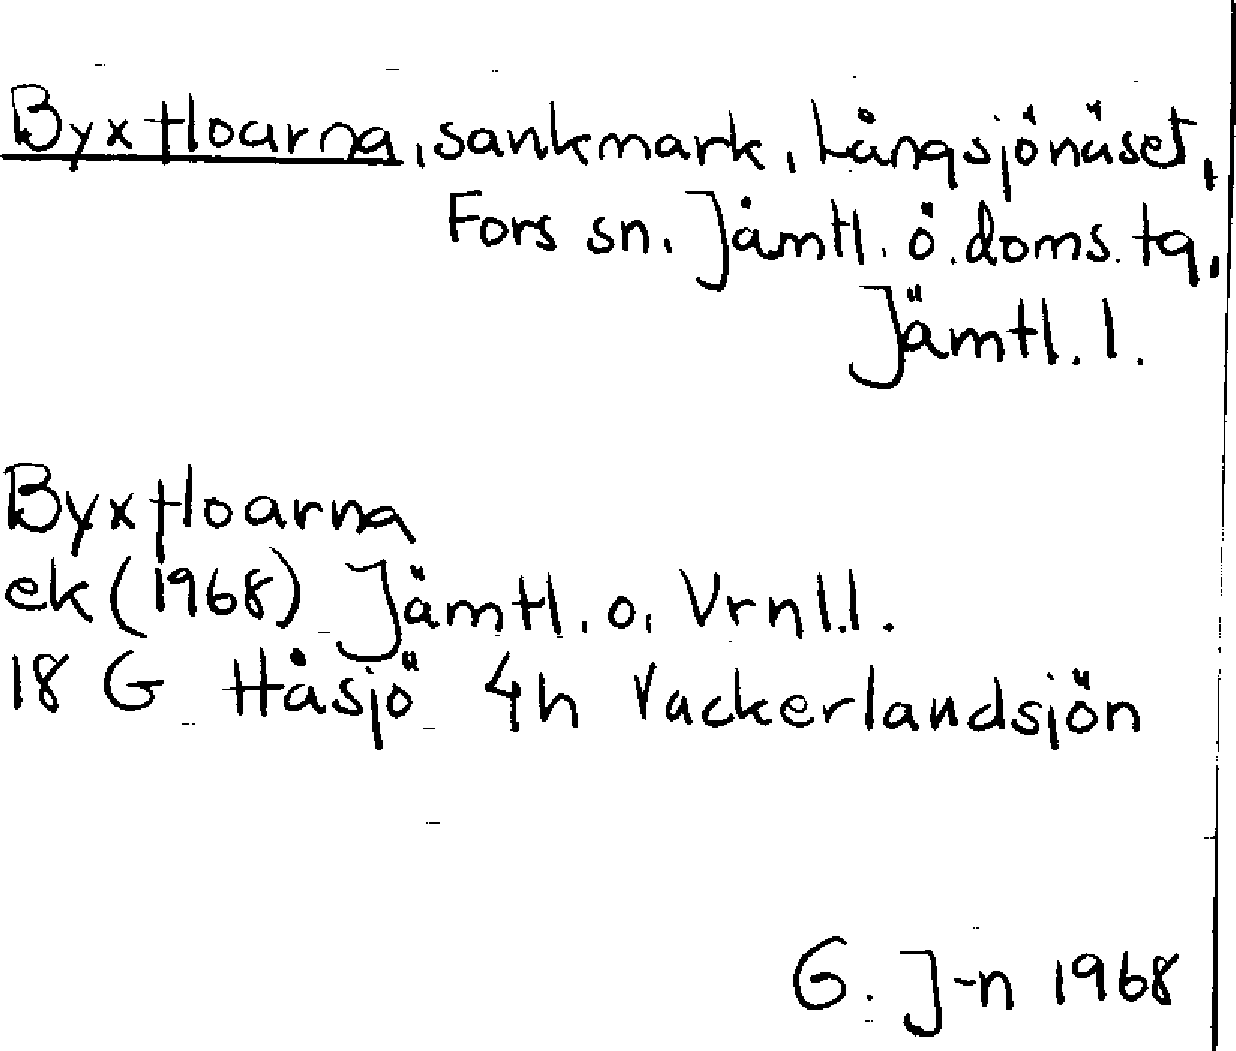 Byxfloarna, sankmark, Långsjönäset,
Fors sn. Jämtl. ö. doms. tg,
Jämtl. l.
Byxfloarna
ek (1968) Jämtl. o. Vrnl.l.
18 G Håsjö 4h Vackerlandsjön
G. J-n 1968